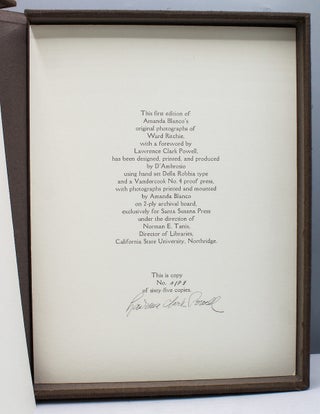 This first edition of
Amanda Blanco's
original photographs of
Ward Ritchie,
with a foreword by
Lawrence Clark Powell,
has been designed, printed, and produced
by D'Ambrosio
using hand set Della Robbia type
and a Vandercook No. 4 proof press,
with photographs printed and mounted
by Amanda Blanco
on 2-ply archival board,
exclusively for Santa Susana Press
under the direction of
Norman E. Tanis,
Director of Libraries,
California State University, Northridge.
This is copy
No.
of sixty five copies.
Lawrence Clark Powell